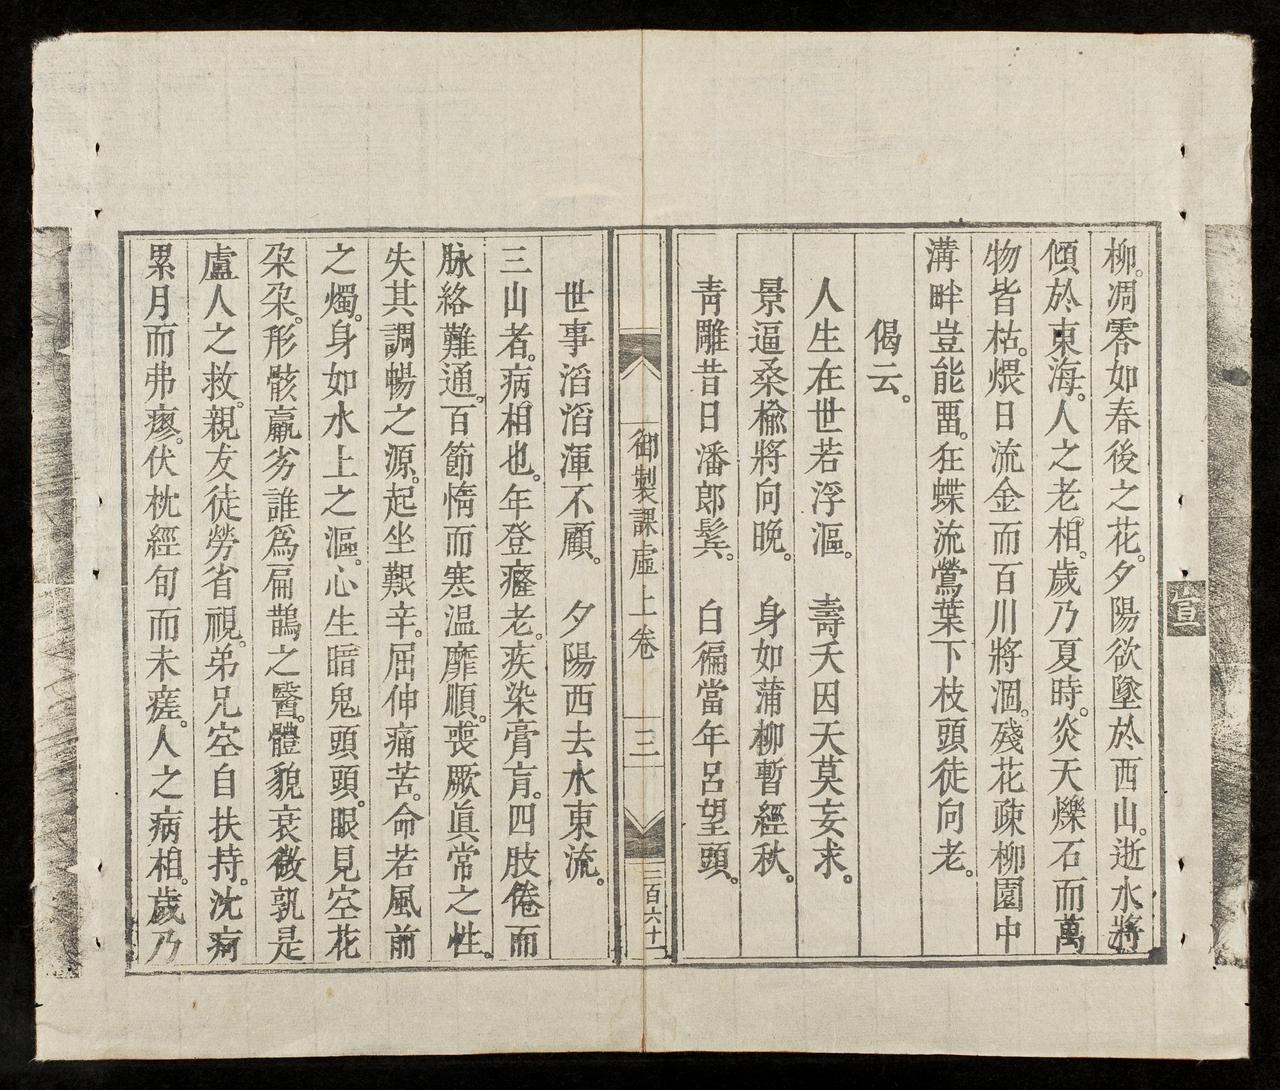 柳。凋零如春後之花。夕陽欲墜於西山。逝水將
傾於東海。人之老相。歲乃夏時。炎天爍石而萬
物皆枯。煨日流金而百川將涸。殘花疎柳園中
溝畔豈能畱。狂蝶流鶯葉下枝頭徒向老。
偈云。
人生在世若浮漚。　壽夭因天莫妄求。
景逼桑榆將向晚。　身如蒲柳暫經秋。
青雕昔日潘郎鬂。　白徧當年呂望頭。
御製課虛上卷　三　三百六十一
世事滔滔渾不顧。　夕陽西去水東流。
三山者。病相也。年登癃老。疾染膏肓。四肢倦而
脉絡難通。百節惰而寒温靡順。喪厥眞常之性。
失其調暢之源。起坐艱辛。屈伸痛苦。命若風前
之燭。身如水上之漚。心生暗鬼頭頭。眼見空花
朶朶。形骸羸劣誰爲扁鵲之醫。體貌衰微孰是
盧人之救。親友徒勞省視。弟兄空自扶持。沈痾
累月而弗瘳。伏枕經旬而未瘥。人之病相。歲乃